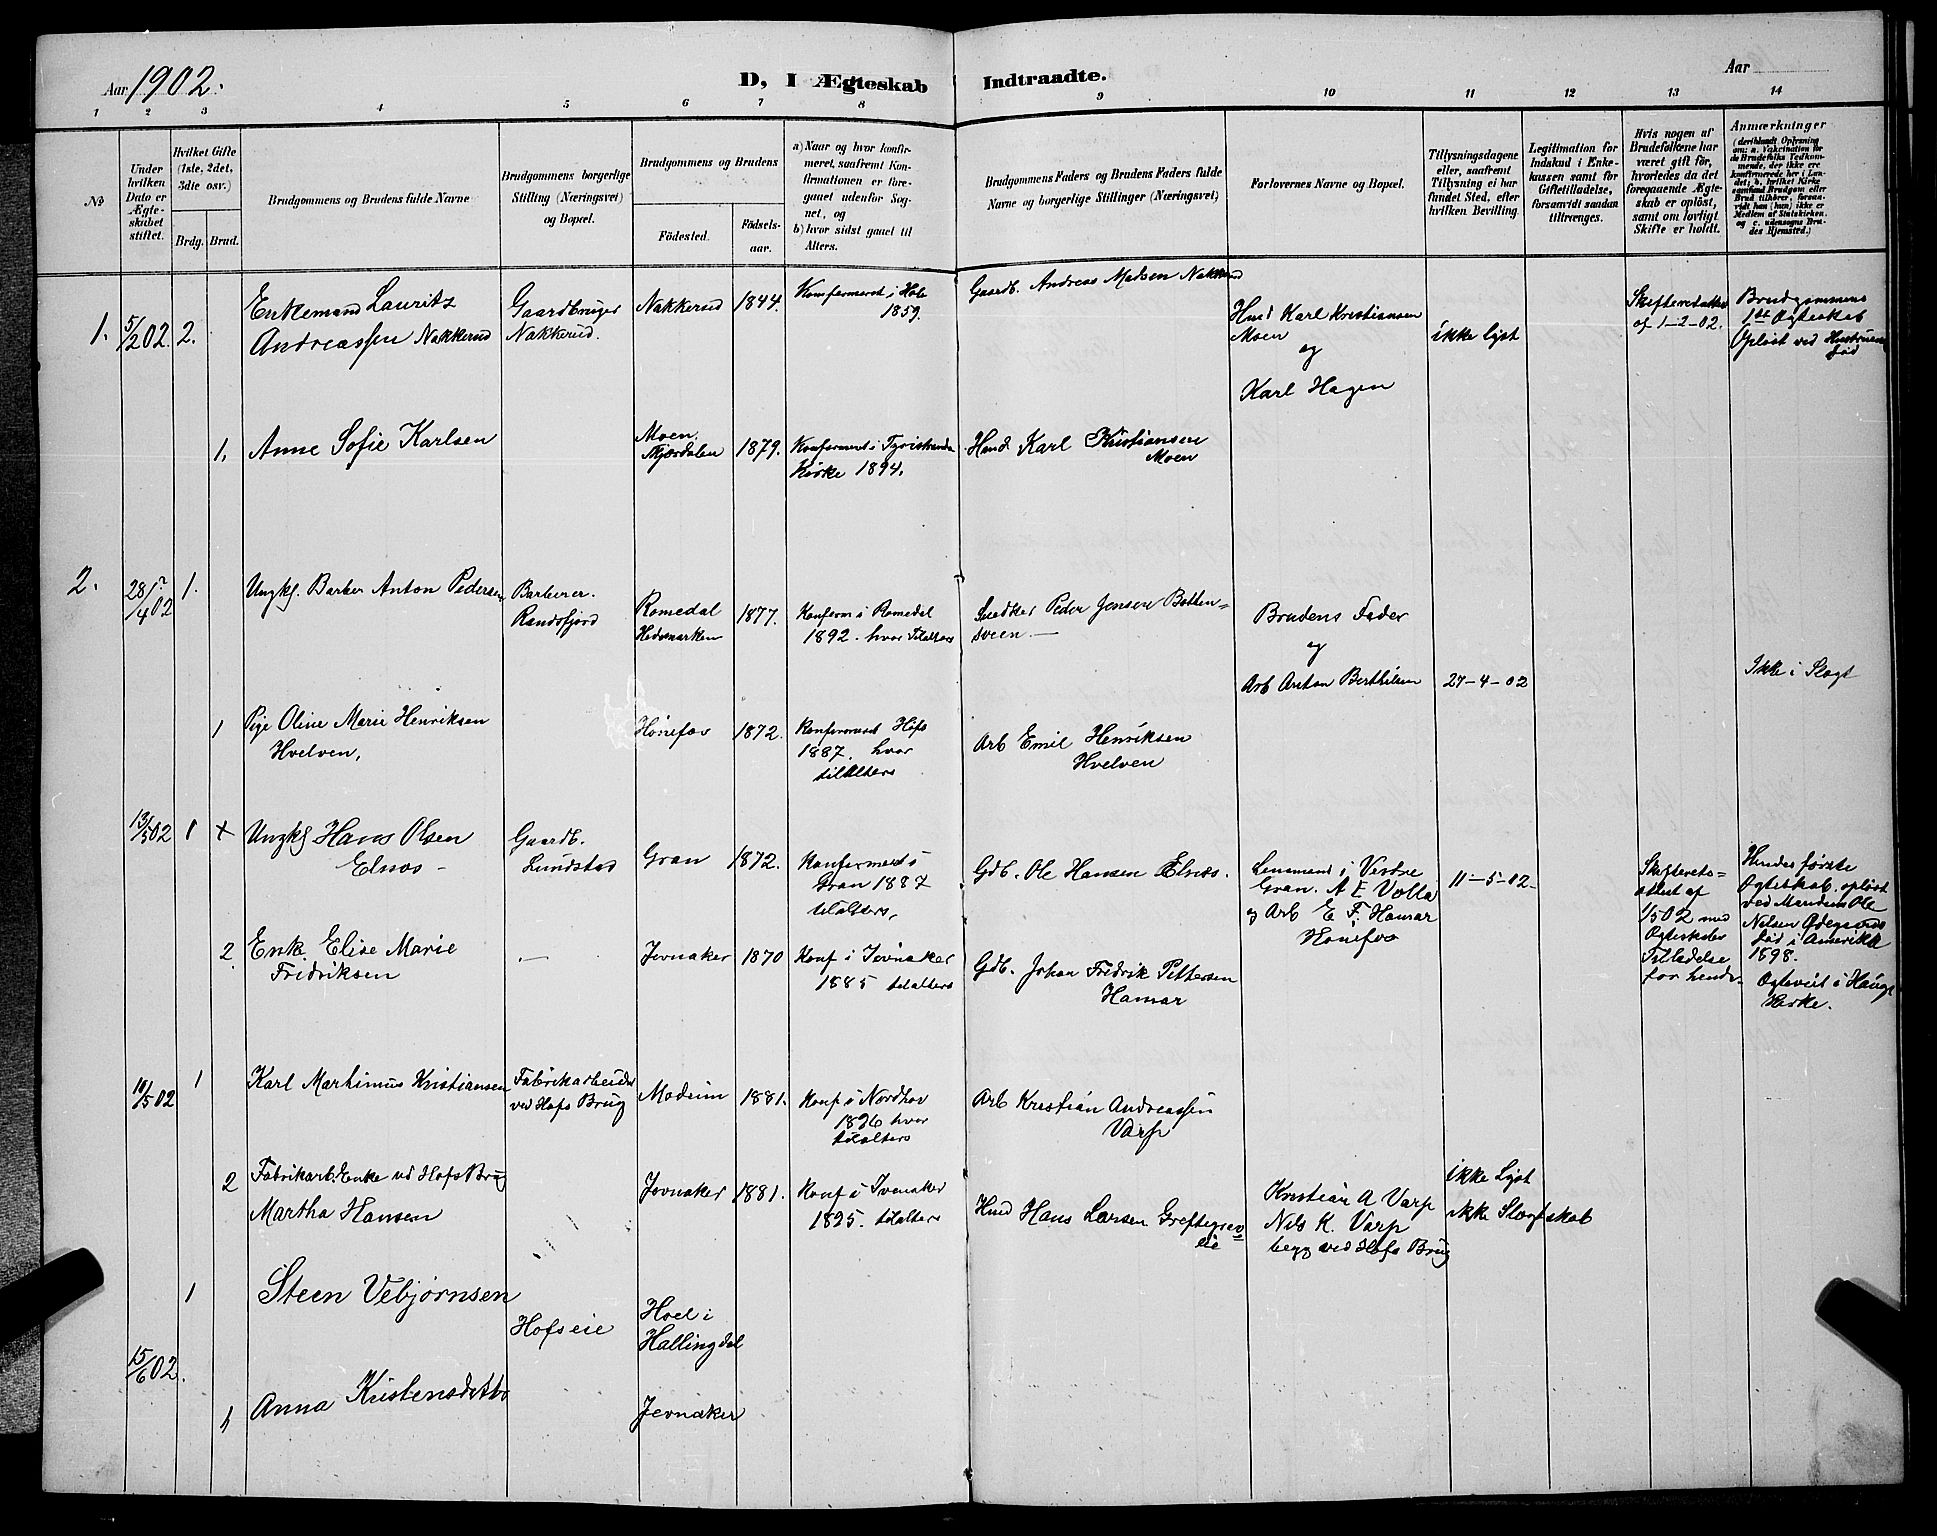 Aar 1902.
D, I Ægteskab Indtraadte.
Aar
1 2 3 4 5 6 7 8 9 10 11 12 13 14
No
Under hvilken Dato er Ægteskabet stiftet.
Hvilket Gifte (1ste, 2det, 3die osv.)
Brdg. Brud.
Brudgommens og Brudens fulde Navne
Brudgommens borgerlige Stilling (Næringsvei) og Bopæl.
Brudgommens og Brudens
Fødested. Fødselsaar.
a) Naar og hvor konfirmeret, saafremt Konfirmationen er foregaaet udenfor Sognet, og
b) hvor sidst gaaet til Alters.
Brudgommens Faders og Brudens Faders fulde Navne og borgerlige Stillinger (Næringsvei)
Forlovernes Navne og Bopæl.
Tillysningsdagene eller, saafremt Tillysning ei har fundet Sted, efter hvilken Bevilling.
Legitimation for Indskud i Enkekassen samt for Giftetilladelse, forsaavidt saadan tiltrænges.
Hvis nogen af Brudefolkene har været gift før, hvorledes da det foregaaende Ægteskab er opløst, samt om lovligt Skifte er holdt.
Anmærkninger
(deriblandt Oplysning om: a. Vakcination for de Brudefolks Vedkommende, der ikke ere konfirmerede her i Landet; b. hvilket Kirkesamfund Brudgom eller Brud tilhører, forsaavidt han (hun) ikke er Medlem af Statskirken, og c. udensogns Brudes Hjemsted.)
1. 5/2 02. 2.
Enkemand Lauritz
Andreassen Nakkerud
Gaardbruger
Nakkerud.
Nakkerud 1844.
Konfirmeret i Hole
1859.
Gaardb. Andreas Madsen Nakkerud
Husd Karl Kristiansen
Moen
og
Karl Hagen
ikke lyst
Skifteretattest
af 1-2-02.
Brudgommens
1ste Ægteskab
Opløst ved Hustruens
død
1. Anne Sofie Karlsen
Moen.
1879.
Konfirmeret i Tyristranda
Kirke 1894.
Husd Karl Kristiansen
Moen
2. 28/4 02 1.
Ungkl. Barber Anton Pedersen
Barberer.
Randsfjord
Romedal
Hedemarken
1877.
Konferm i Romedal
1892. hvor tilalters
Snedker Peder Jensen Botten=
sveen.
Brudens Fader
og
Arb Anton Berthilsen
27-4-02
Ikke i Slegt
1 Pige Oline Marie Henriksen
Hvelven,
Hønefos 1872.
Konfirmeret Hofs
1887. hvor
tilalters
Arb Emil Henriksen
Hvelven
13/5 02 1 +
Ungkl Hans Olsen
Elnæs
Gaardb.
Lundstad
Gran 1872.
Konfermert i
Gran 1887
tilalters,
Gdb. Ole Hansen Elnæs.
Lensmand i Vestre
Gran. A E Volla
og Arb E F. Hamar
Hønefos
11-5-02.
Skifterets=
attest af
1/5 02 med
Ægteskabs
Tilladelse
for hende.
Hendes første
Ægteskab. opløst
ved Manden Ole
Nilsen Ødegaards
død i Amerika
1898.
Ægteviet i Haugs
Kirke.
2. Enk. Elise Marie
Fridriksen
Jevnaker 1870
Konf i Jevnaker
1885 tilalters
Gdb. Johan Fredrik Pettersen
Hamar
10/5 02 1
Karl Marthinius Kristiansen
Fabrikarbeider
ved Hofs Brug
Modum 1881.
Konf i Nordhov
1896 hvor
tilalters
Arb Kristian Andreassen
Varp
2 Fabrikarb. Enke ved Hofs Brug
Martha Hansen
Jevnaker 1881.
Konf i Jevnaker
1895. tilalters
Husd Hans Larsen
eie
Kristian A Varp
Nils K. Varp
begg ved Hofs Brug
ikke Lyst
ikke Slægtskab
1 Steen Vebjørnsen
Hofseie
Hoel i
Hallingdal
15/6 02.
1 Anna Kristensdatter
Jevnaker